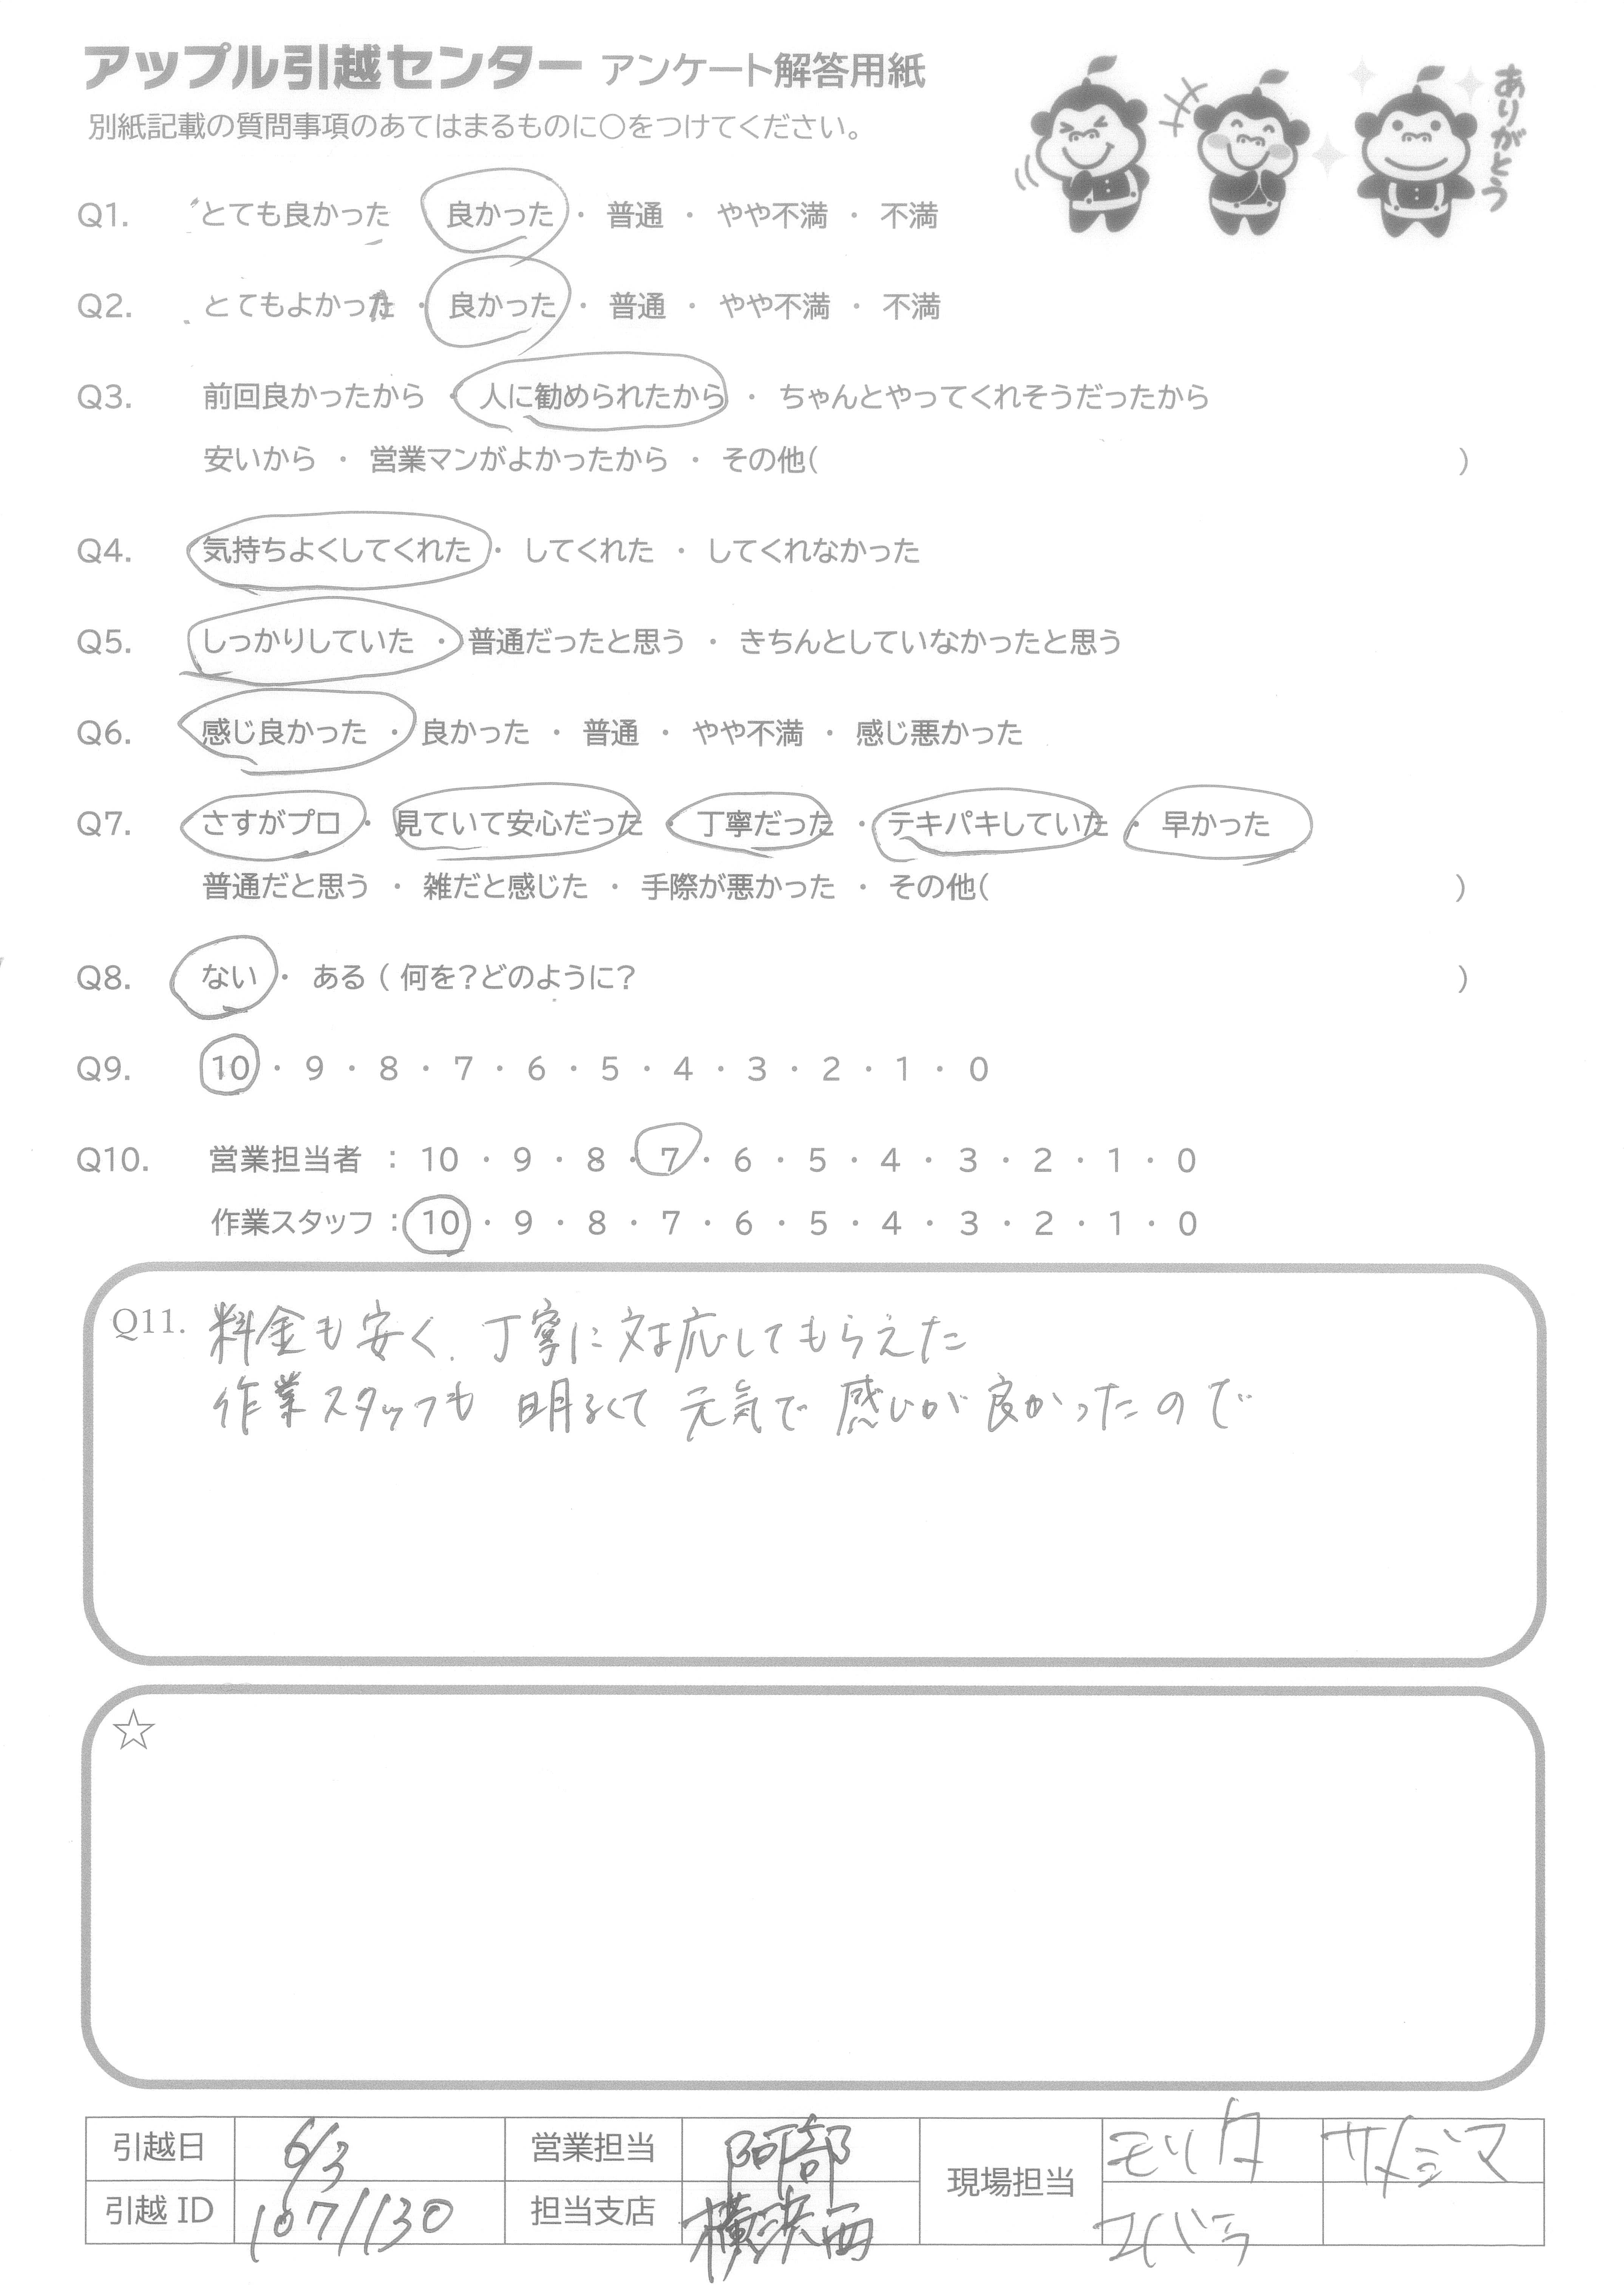 アップル引越センター アンケート解答用紙
別紙記載の質問事項のあてはまるものに○をつけてください。
ありがとう
Q1. とても良かった 良かった ・ 普通 ・ やや不満 ・ 不満
Q2. とてもよかった ・ 良かった ・ 普通 ・ やや不満 ・ 不満
Q3. 前回良かったから ・ 人に勧められたから ・ ちゃんとやってくれそうだったから
安いから ・ 営業マンがよかったから ・ その他( )
Q4. 気持ちよくしてくれた ・ してくれた ・ してくれなかった
Q5. しっかりしていた ・ 普通だったと思う ・ きちんとしていなかったと思う
Q6. 感じ良かった ・ 良かった ・ 普通 ・ やや不満 ・ 感じ悪かった
Q7. さすがプロ ・ 見ていて安心だった ・ 丁寧だった ・ テキパキしていた ・ 早かった
普通だと思う ・ 雑だと感じた ・ 手際が悪かった ・ その他( )
Q8. ない ・ ある ( 何を?どのように? )
Q9. 10 ・ 9 ・ 8 ・ 7 ・ 6 ・ 5 ・ 4 ・ 3 ・ 2 ・ 1 ・ 0
Q10. 営業担当者 : 10 ・ 9 ・ 8 ・ 7 ・ 6 ・ 5 ・ 4 ・ 3 ・ 2 ・ 1 ・ 0
作業スタッフ : 10 ・ 9 ・ 8 ・ 7 ・ 6 ・ 5 ・ 4 ・ 3 ・ 2 ・ 1 ・ 0
Q11. 料金も安く、丁寧に対応してもらえた
作業スタッフも 明るくて 元気で 感じが 良かったので
☆
引越日 6/3 営業担当 阿部 現場担当 モリタ サメジマ
引越 ID 1071130 担当支店 横浜西